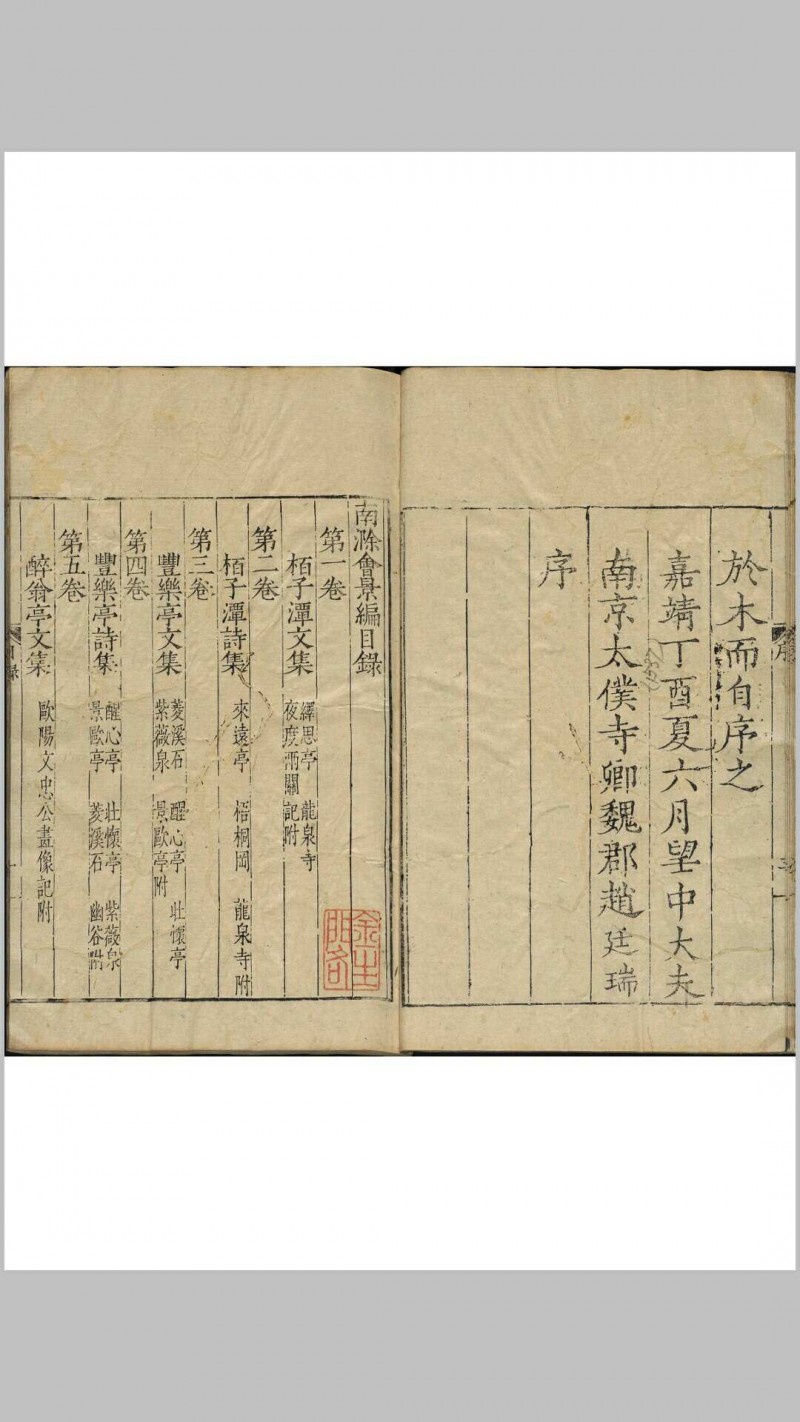 於木而自序之
嘉靖丁酉夏六月望中大夫
南京太僕寺卿魏郡趙廷瑞
序
南滁會景編目錄
第一卷
栢子潭文集 繹思亭 龍泉寺
夜度兩關記附
第二卷
栢子潭詩集 來遠亭 梧桐岡 龍泉寺附
第三卷
豐樂亭文集 菱溪石 醒心亭 壯懷亭
紫薇泉 景歐亭附
第四卷
豐樂亭詩集 醒心亭 壯懷亭 紫薇泉
景歐亭 菱溪石 幽谷附
第五卷
醉翁亭文集 歐陽文忠公畫像記附